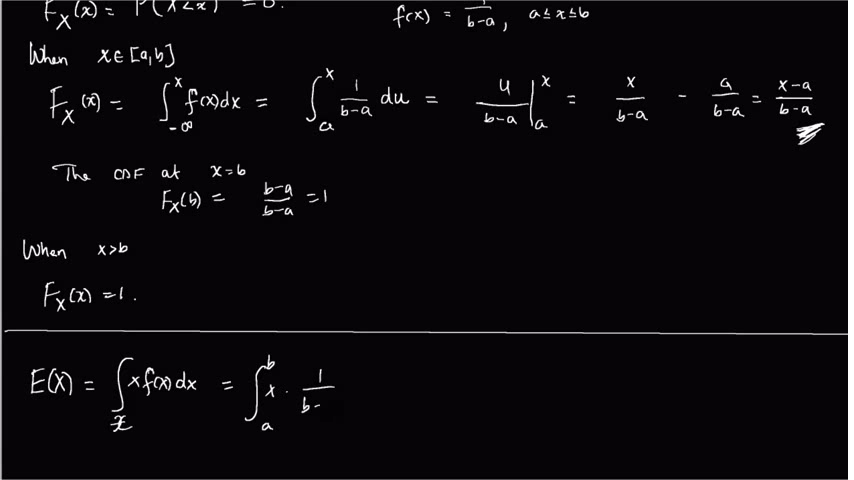 F_X(x) = P(X<x) = 0. f(x) = 1/(b-a), a≤x≤b
When x∈[a,b]
F_X(x) = ∫_{-∞}^{x} f(x)dx = ∫_a^x 1/(b-a) du = u/(b-a) |_a^x = x/(b-a) - a/(b-a) = (x-a)/(b-a)
The CDF at x=b
F_X(b) = (b-a)/(b-a) = 1
When x>b
F_X(x) = 1.
E(X) = ∫_x x f(x) dx = ∫_a^b x · 1/(b-